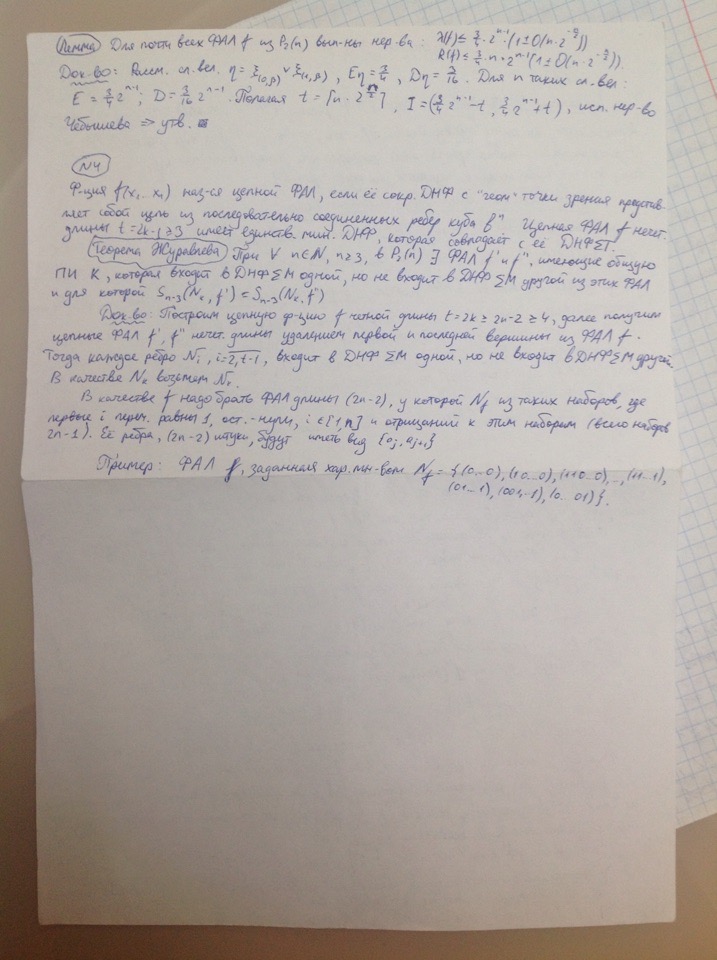 Лемма Для почти всех ФАЛ f из P₂(n) вып-ны нер-ва: λ(f) ≤ 3/4 · 2ⁿ⁻¹ · (1 ± O(n · 2^(-n/2)))
R(f) ≤ 3/4 · n · 2ⁿ⁻¹ (1 ± O(n · 2^(-n/2))).
Док-во: Рассм. сл. вел. η = ξ(0,β) ∨ ξ(1,β), Eη = 3/4, Dη = 3/16. Для n таких сл. вел:
E = 3/4 2ⁿ⁻¹; D = 3/16 2ⁿ⁻¹. Полагая t = ⌈n · 2^(n/2)⌉, I = (3/4 2ⁿ⁻¹ - t, 3/4 2ⁿ⁻¹ + t), исп. нер-во
Чебышева ⇒ утв.
N4
Ф-ция f(x₁.. xₙ) наз-ся цепной ФАЛ, если её сокр. ДНФ с "геом" точки зрения представ-
ляет собой цепь из последовательно соединенных ребер куба Bⁿ. Цепная ФАЛ f нечет.
длины t = 2k-1 ≥ 3 имеет единств. мин. ДНФ, которая совпадает с её ДНФ ΣT.
Теорема Журавлева При ∀ n∈N, n≥3, в P₂(n) ∃ ФАЛ f' и f'', имеющие общую
ПИ K, которая входит в ДНФ ΣM одной, но не входит в ДНФ ΣM другой из этих ФАЛ
и для которой Sₙ₋₃(Nₖ, f') = Sₙ₋₃(Nₖ, f'')
Док-во: Построим цепную ф-цию f четной длины t = 2k ≥ 2n-2 ≥ 4, далее получим
цепные ФАЛ f', f'' нечет. длины удалением первой и последней вершины из ФАЛ f.
Тогда каждое ребро Nᵢ, i = 2, t-1, входит в ДНФ ΣM одной, но не входит в ДНФ ΣM другой.
В качестве Nₖ возьмем Nᵣ.
В качестве f надо брать ФАЛ длины (2n-2), у которой N_f из таких наборов, где
первые i перем. равны 1, ост. - нули, i ∈ [1,n] и отрицаний к этим наборам (всего наборов
2n-1). Её ребра, (2n-2) штуки, будут иметь вид {aⱼ, aⱼ₊₁}
Пример: ФАЛ f, заданная хар. мн-вом N_f = {(0..0), (10...0), (110..0), .., (11...1),
(01...1), (001..1), (0.. 01)}.